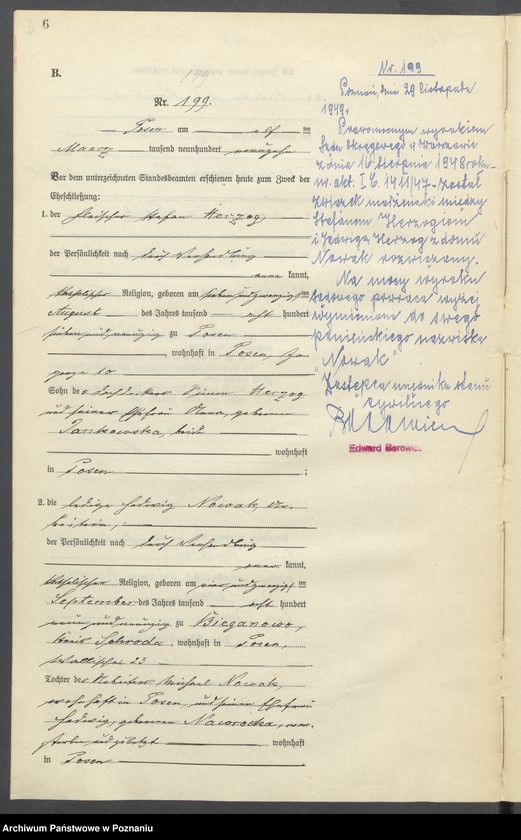 6
B.
199
Nr. 199.
Posen am elf ten
Maerz tausend neunhundert neunzehn
Vor dem unterzeichneten Standesbeamten erschienen heute zum Zweck der
Eheschließung:
1. der Fleischer Stefan Herzog,
der Persönlichkeit nach durch Verhandlung
anerkannt,
katholischer Religion, geboren am siebenundzwanzigsten
August des Jahres tausend acht hundert
siebenundneunzig zu Posen
, wohnhaft in Posen,
10
Sohn des Herzog
und seiner Ehefrau geborenen
Pankowska, beide
wohnhaft
in Posen ;
2. die ledige Hedwig Nowak, Ar-
beiterin,
der Persönlichkeit nach durch Verhandlung
kannt,
katholischer Religion, geboren am vierundzwanzigsten
September des Jahres tausend acht hundert
neunundneunzig zu Bieganowo,
Kreis Schroda, wohnhaft in Posen,
Wallischei 23
Tochter des Arbeiters Michael Nowak,
wohnhaft in Posen, und seiner Ehefrau
Hedwig, geborenen Nawrocka, ver-
storben und zuletzt wohnhaft
in Posen
Nr. 199
Poznań, dnia 29 listopada
1949.
Prawomocnym wyrokiem
Sądu Okręgowego w Warszawie
z dnia 16 sierpnia 1948 roku
nr. akt. I C. 1411/47 został
związek małżeński między
Stefanem Herzogiem
i Jadwigą Herzog z domu
Nowak rozwiązany.
Na mocy wyroku
sądowego powraca wyżej
wymieniona do swego
panieńskiego nazwiska
"Nowak"
Zastępca urzędnika stanu
cywilnego
Edward Borowicz
Archiwum Państwowe w Poznaniu